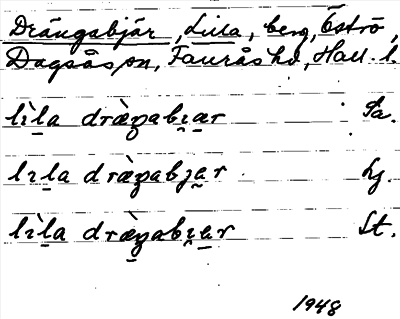 Drängabjär, Lilla, berg, Öströ,
Dagsås sn, Faurås hd, Hall. l.
lìla dræ̀ŋabi̯ar Sa.
lıla dræ̀ŋabjar Lj.
lìla dræ̀ŋabi̯ar St.
1948